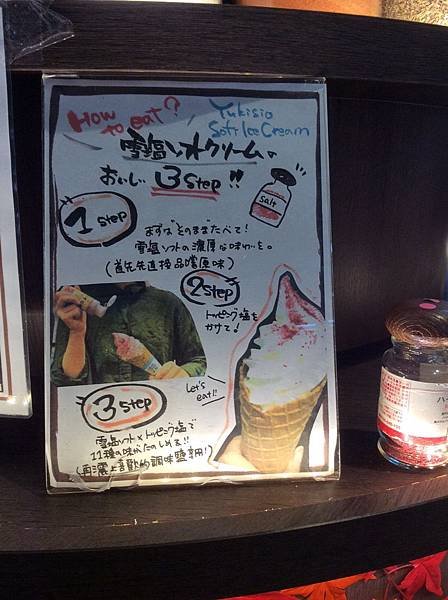 How to eat?
Yukisio
Soft Ice Cream
雪塩ソフトクリームの
おいしい 3 step!!
Salt
1 step
まずは"そのまま"たべて!
雪塩ソフトの濃厚な味わいを。
(首先先直接品嚐原味)
2 step
トッピング塩を
かけて!
Let's
eat!!
3 step
雪塩ソフト×トッピング塩で
11種の味がたのしめる!!
(再灑上喜歡的調味鹽享用!)